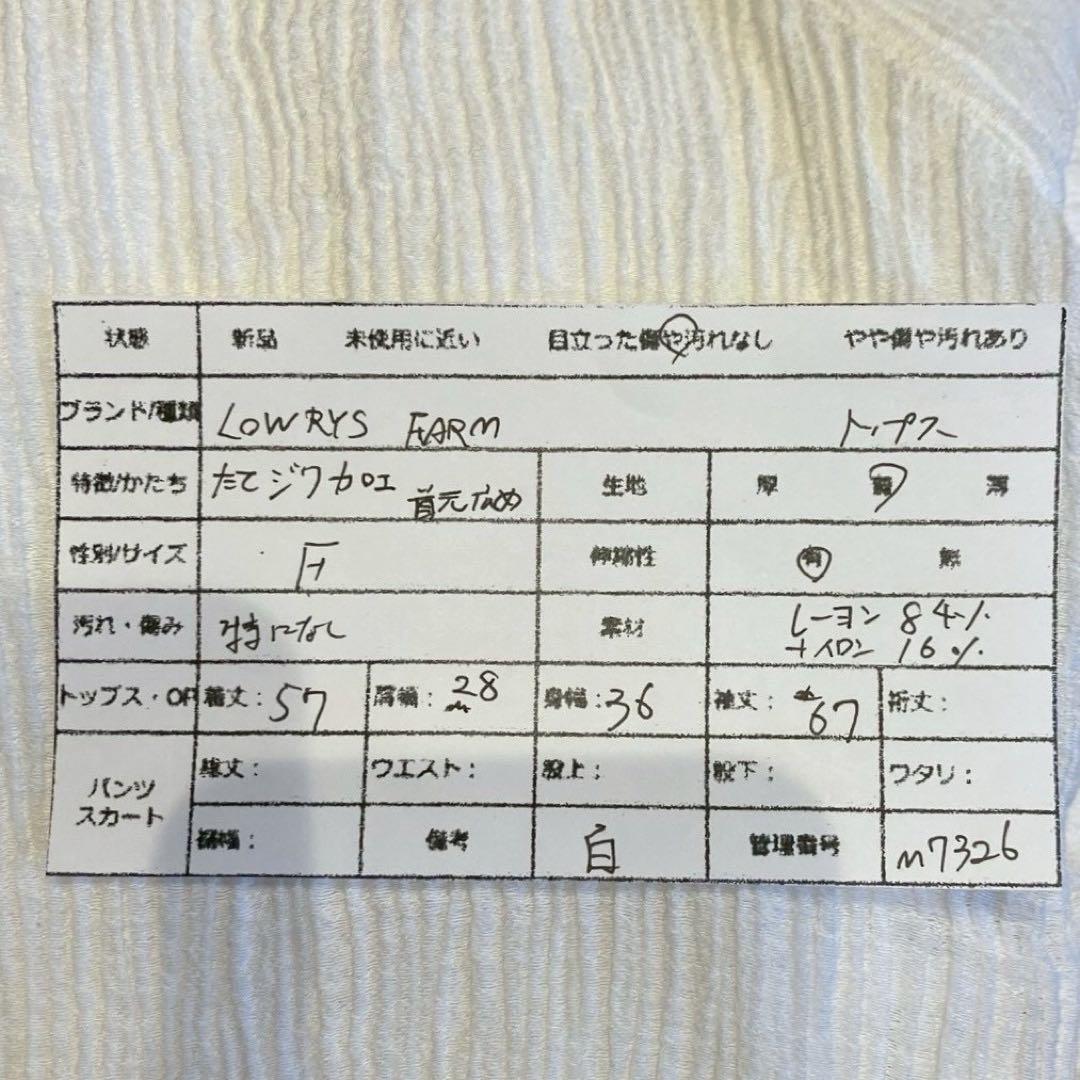 状態 新品 未使用に近い 目立った傷や汚れなし やや傷や汚れあり
ブランド/種類 LOWRYS FARM トップス
特徴/かたち たてジワカロエ 首元広め 生地 厚 薄
性別/サイズ F 伸縮性 有 無
汚れ・傷み 特になし 素材 レーヨン 84%
ナイロン 16%
トップス・OP 着丈: 57 肩幅: 28 身幅: 36 袖丈: 67 裄丈:
パンツ スカート 総丈: ウエスト: 股上: 股下: ワタリ:
裾幅: 備考 白 管理番号 m7326